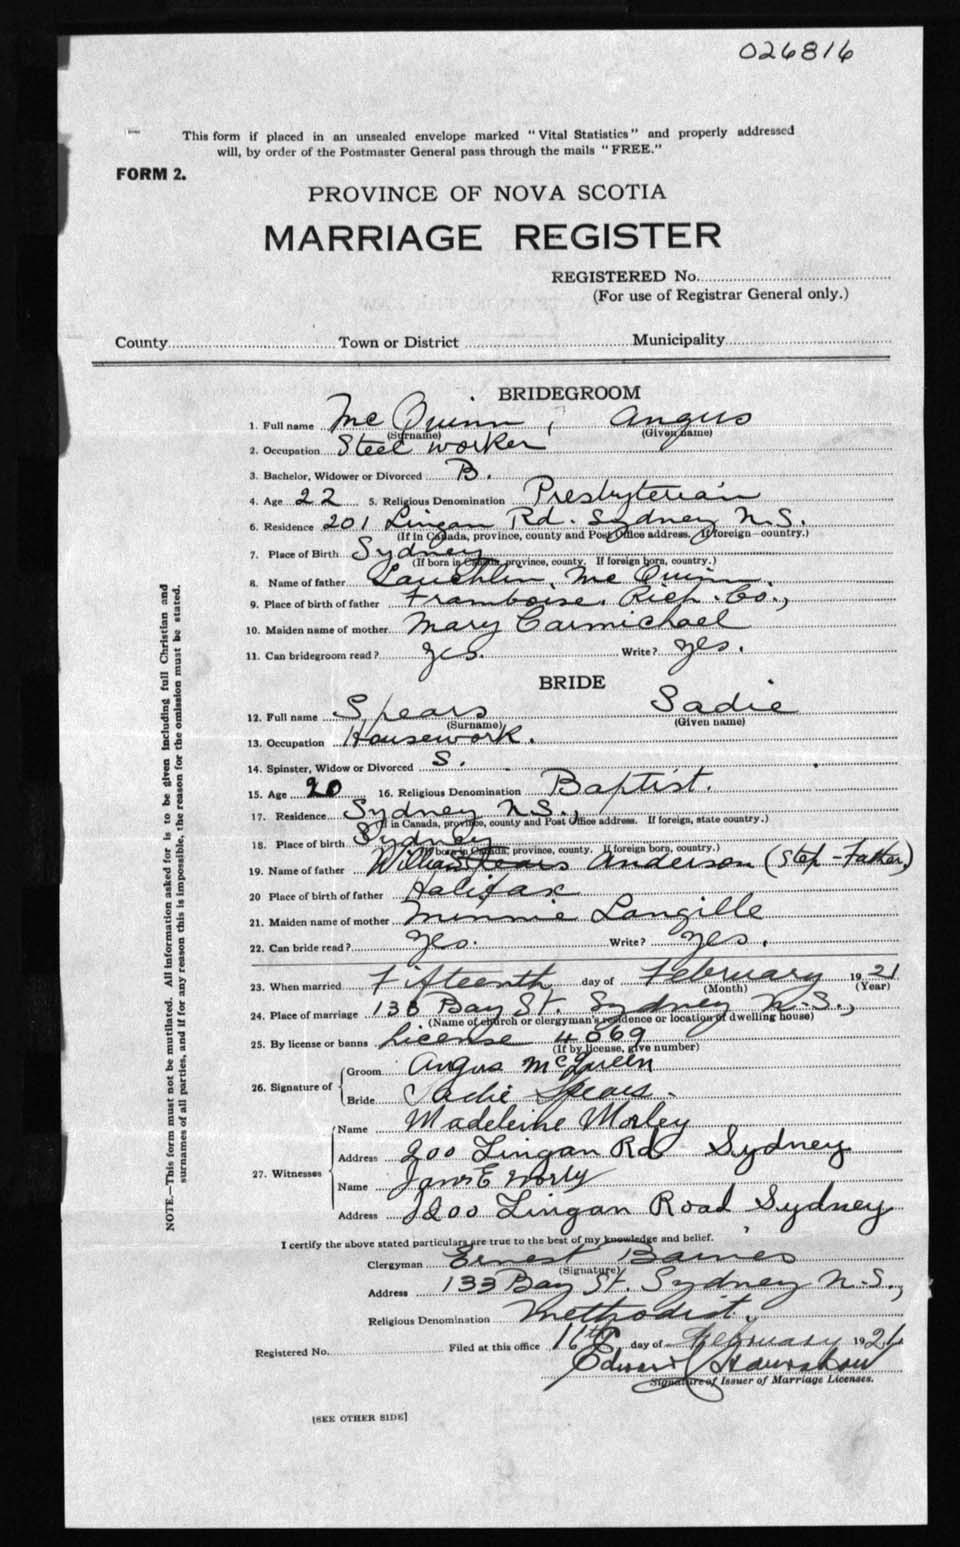 026816
This form if placed in an unsealed envelope marked "Vital Statistics" and properly addressed
will, by order of the Postmaster General pass through the mails "FREE."
FORM 2.
PROVINCE OF NOVA SCOTIA
MARRIAGE REGISTER
REGISTERED No.
(For use of Registrar General only.)
County Town or District Municipality
BRIDEGROOM
1. Full name Mc Quinn, Angus
(Surname) (Given name)
2. Occupation Steel worker
3. Bachelor, Widower or Divorced B.
4. Age 22 5. Religious Denomination Presbyterian
6. Residence 201 Lingan Rd. Sydney N.S.
(If in Canada, province, county and Post Office address. If foreign country.)
7. Place of Birth Sydney
(If born in Canada, province, county. If foreign born, country.)
8. Name of father Lauchlin Mc Quinn.
9. Place of birth of father Framboise, Rich. Co.,
10. Maiden name of mother Mary Carmichael
11. Can bridegroom read? yes. Write? yes.
BRIDE
12. Full name Spears Sadie
(Surname) (Given name)
13. Occupation Housework.
14. Spinster, Widow or Divorced S.
15. Age 20 16. Religious Denomination Baptist.
17. Residence Sydney N.S.,
(If in Canada, province, county and Post Office address. If foreign, state country.)
18. Place of birth Sydney
(If born in Canada, province, county. If foreign born, country.)
19. Name of father William Spears Anderson (Step-Father)
20 Place of birth of father Halifax
21. Maiden name of mother Minnie Langille
22. Can bride read? yes. Write? yes.
23. When married Fifteenth day of February 1921
(Month) (Year)
24. Place of marriage 133 Bay St. Sydney N.S.,
(Name of church or clergyman's residence or location of dwelling house)
25. By license or banns License 4069
(If by license, give number)
26. Signature of Groom Angus McQueen
Bride Sadie Spears.
27. Witnesses Name Madeleine Morley
Address 200 Lingan Rd Sydney
Name E
Address 1200 Lingan Road Sydney
I certify the above stated particulars are true to the best of my knowledge and belief.
Clergyman Ernest Barnes
(Signature)
Address 133 Bay St. Sydney N.S.,
Religious Denomination Methodist.
Registered No. Filed at this office 16th day of February 1921
Edward
Signature of Issuer of Marriage Licenses.
[SEE OTHER SIDE]
NOTE.—This form must not be mutilated. All information asked for is to be given including full Christian and
surnames of all parties, and if for any reason this is impossible, the reason for the omission must be stated.